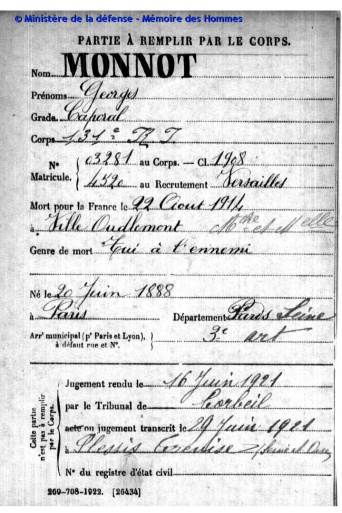 © Ministère de la défense - Mémoire des Hommes
PARTIE À REMPLIR PAR LE CORPS.
Nom MONNOT
Prénoms Georges
Grade Caporal
Corps 131e R I
N° Matricule. { 03281 au Corps. — Cl. 1908
4520 au Recrutement Versailles
Mort pour la France le 22 Aout 1914
à Ville Oudlemont Mthe et Melle
Genre de mort Tué à l'ennemi
Né le 20 Juin 1888
à Paris Département Paris Seine
Arrt municipal (pr Paris et Lyon), à défaut rue et N°. } 3e art
Cette partie n'est pas à remplir par le Corps.
Jugement rendu le 16 Juin 1921
par le Tribunal de Corbeil
acte ou jugement transcrit le 29 Juin 1921
à Plessis
N° du registre d'état civil
269-708-1922. [26434]